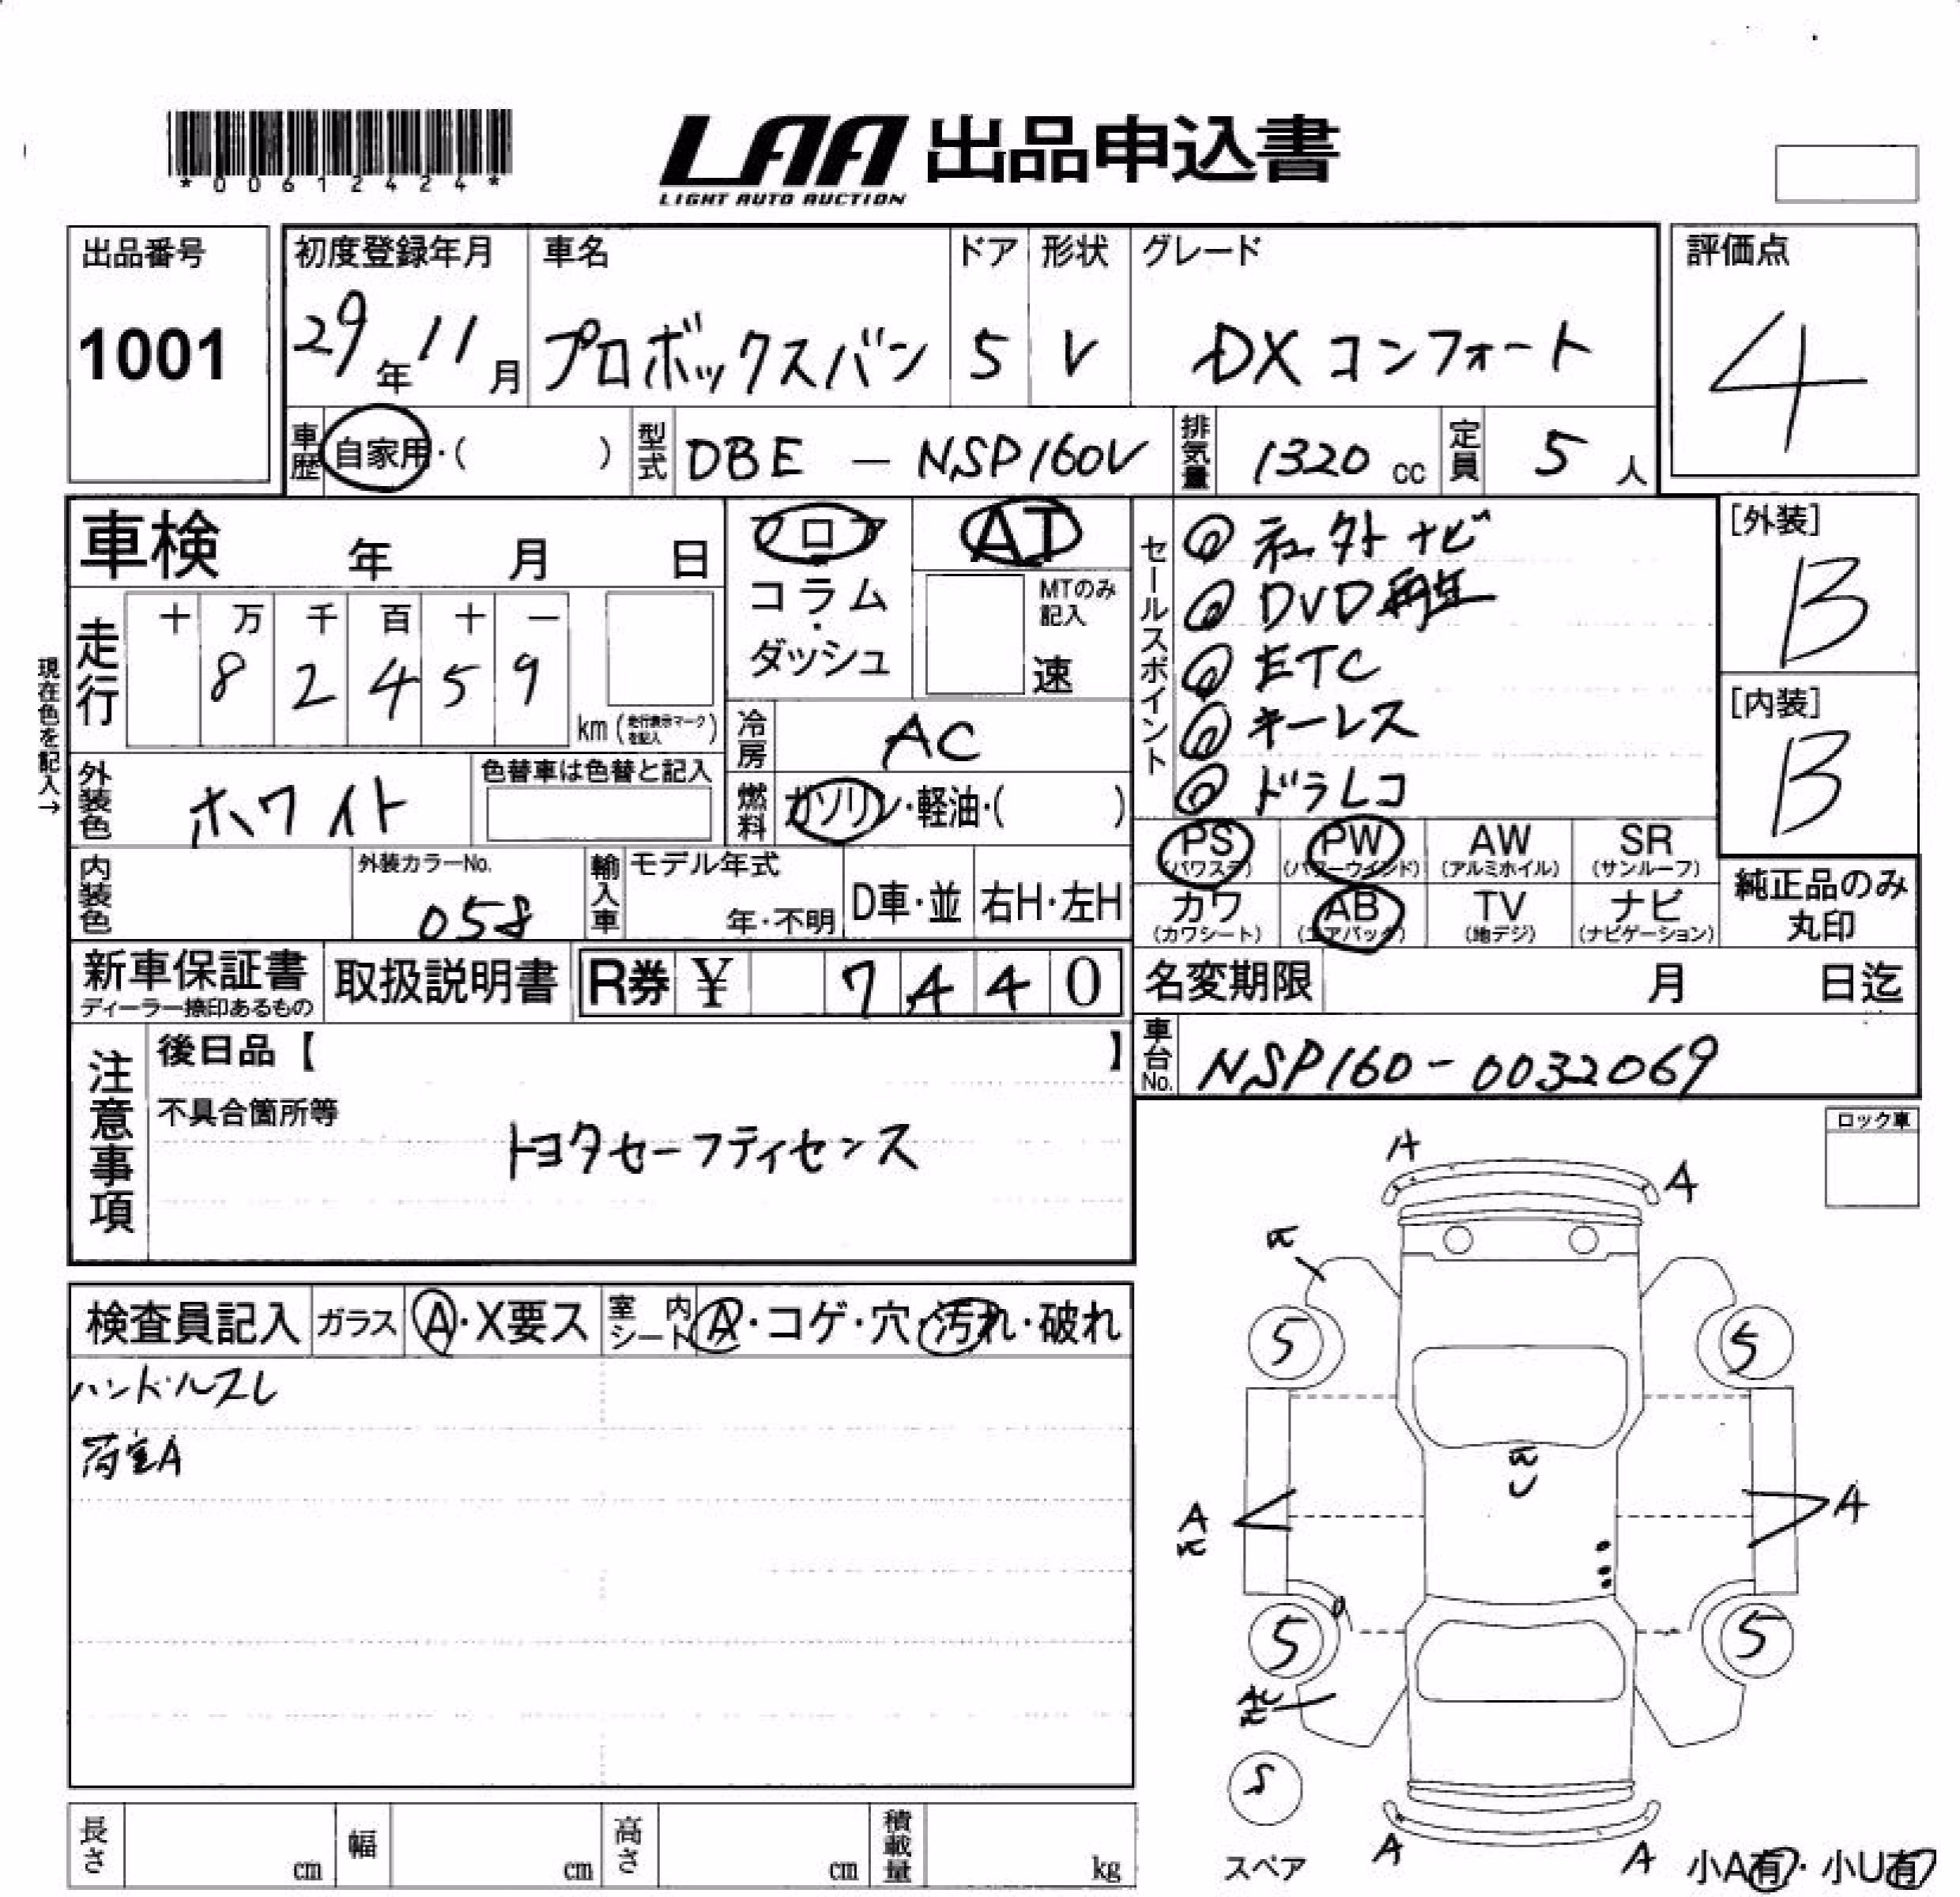 *00612424*
LAA 出品申込書
LIGHT AUTO AUCTION
出品番号
1001
初度登録年月
29年11月
車名
プロボックスバン
ドア
5
形状
V
グレード
DXコンフォート
評価点
4
車歴 自家用・( )
型式 DBE - NSP160V
排気量 1320 cc
定員 5 人
車検 年 月 日
フロア
コラム
・
ダッシュ
AT
MTのみ
記入
速
現在色を記入→
走行
十 万 千 百 十 一
8 2 4 5 9
km (走行表示マークを記入)
冷房 AC
外装色 ホワイト
色替車は色替と記入
燃料 ガソリン・軽油・( )
内装色
外装カラーNo.
058
輸入車
モデル年式
年・不明
D車・並
右H・左H
セールスポイント
◎ 社外ナビ
◎ DVD再生
◎ ETC
◎ キーレス
◎ ドラレコ
[外装]
B
[内装]
B
PS (パワステ)
PW (パワーウインド)
AW (アルミホイル)
SR (サンルーフ)
カワ (カワシート)
AB (エアバック)
TV (地デジ)
ナビ (ナビゲーション)
純正品のみ
丸印
新車保証書
ディーラー捺印あるもの
取扱説明書
R券 ¥ 7440
名変期限 月 日迄
車台No. NSP160-0032069
注意事項
後日品【 】
不具合箇所等
トヨタセーフティセンス
ロック車
検査員記入
ガラス A・X要ス
室内シート A・コゲ・穴・汚れ・破れ
ハンドルスレ
荷室A
A
A
5
5
U
A
A
5
5
S
スペア
A
A
小A有・小U有
長さ cm
幅 cm
高さ cm
積載量 kg